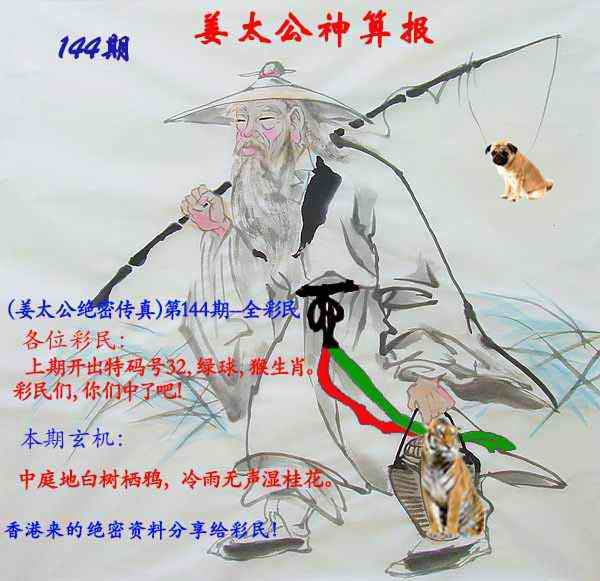 144期
姜太公神算报
(姜太公绝密传真)第144期–全彩民
各位彩民:
上期开出特码号32,绿球,猴生肖。
彩民们,你们中了吧!
本期玄机:
中庭地白树栖鸦,冷雨无声湿桂花。
香港来的绝密资料分享给彩民!